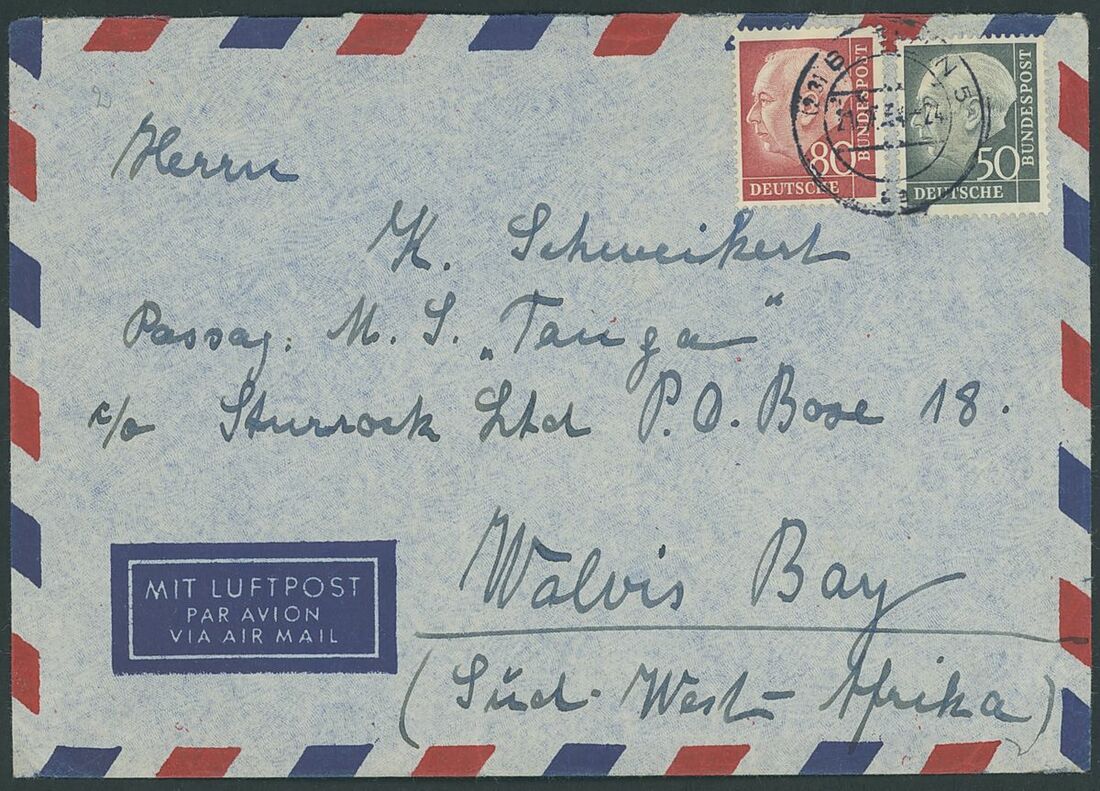 Herrn
K. Schweikert
Passag. M. S. „Tanga“
c/o Sturrock Ltd P.O. Boxe 18.
Walvis Bay
(Süd-West-Afrika)
MIT LUFTPOST
PAR AVION
VIA AIR MAIL
80
DEUTSCHE
BUNDESPOST
50
DEUTSCHE
BUNDESPOST
(23)